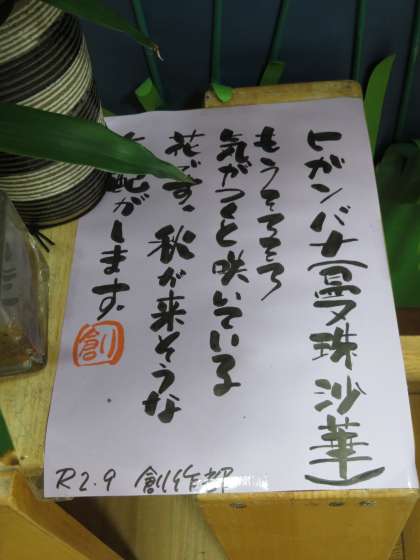 ヒガンバナ(曼珠沙華)
もうそろそろ
気がつくと咲いている
花です。秋が来そうな
配がします。
創
R2.9 創作部